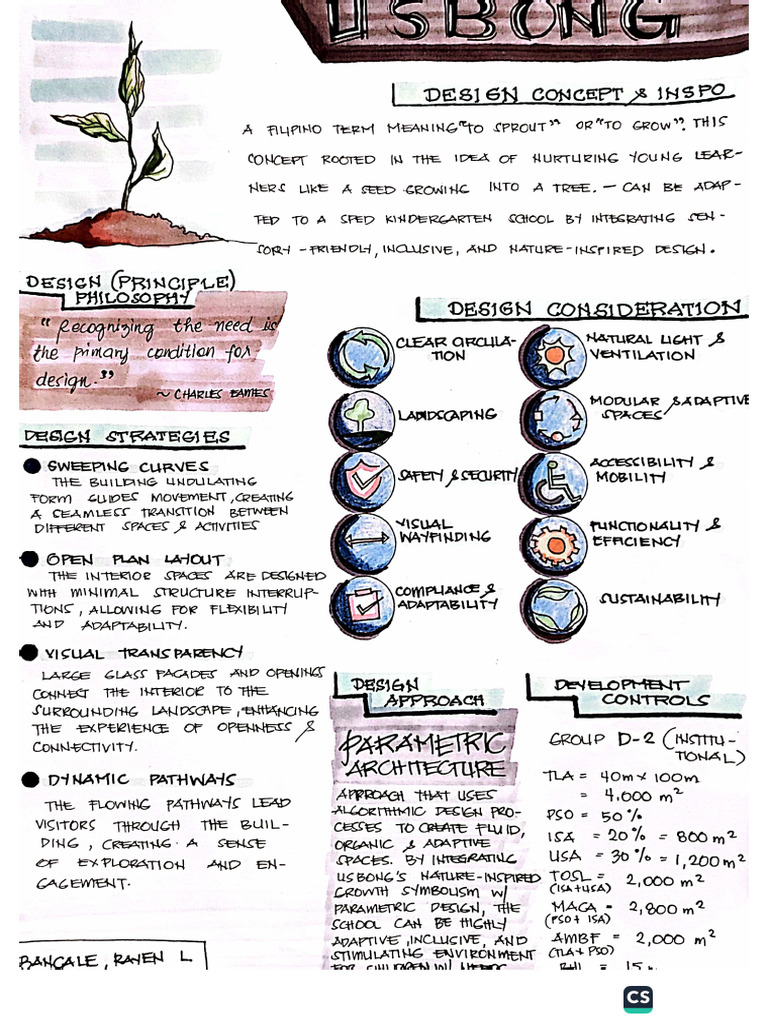 USBONG
DESIGN CONCEPT & INSPO
A FILIPINO TERM MEANING "TO SPROUT" OR "TO GROW". THIS
CONCEPT ROOTED IN THE IDEA OF NURTURING YOUNG LEAR-
NERS LIKE A SEED GROWING INTO A TREE. – CAN BE ADAP-
TED TO A SPED KINDERGARTEN SCHOOL BY INTEGRATING SEN-
SORY - FRIENDLY, INCLUSIVE, AND NATURE-INSPIRED DESIGN.
DESIGN (PRINCIPLE)
PHILOSOPHY
"Recognizing the need is
the primary condition for
design."
~ CHARLES EAMES
DESIGN STRATEGIES
SWEEPING CURVES
THE BUILDING UNDULATING
FORM GUIDES MOVEMENT, CREATING
A SEAMLESS TRANSITION BETWEEN
DIFFERENT SPACES & ACTIVITIES
OPEN PLAN LAYOUT
THE INTERIOR SPACES ARE DESIGNED
WITH MINIMAL STRUCTURE INTERRUP-
TIONS, ALLOWING FOR FLEXIBILITY
AND ADAPTABILITY.
VISUAL TRANSPARENCY
LARGE GLASS FACADES AND OPENINGS
CONNECT THE INTERIOR TO THE
SURROUNDING LANDSCAPE, ENHANCING
THE EXPERIENCE OF OPENNESS &
CONNECTIVITY.
DYNAMIC PATHWAYS
THE FLOWING PATHWAYS LEAD
VISITORS THROUGH THE BUIL-
DING, CREATING A SENSE
OF EXPLORATION AND EN-
GAGEMENT.
BANCALE, RAVEN L.
DESIGN CONSIDERATION
CLEAR CIRCULA-
TION
LANDSCAPING
SAFETY & SECURITY
VISUAL
WAYFINDING
COMPLIANCE &
ADAPTABILITY
NATURAL LIGHT &
VENTILATION
MODULAR & ADAPTIVE
SPACES
ACCESSIBILITY &
MOBILITY
FUNCTIONALITY &
EFFICIENCY
SUSTAINABILITY
DESIGN
APPROACH
PARAMETRIC
ARCHITECTURE
APPROACH THAT USES
ALGORITHMIC DESIGN PRO-
CESSES TO CREATE FLUID,
ORGANIC & ADAPTIVE
SPACES. BY INTEGRATING
USBONG'S NATURE-INSPIRED
GROWTH SYMBOLISM W/
PARAMETRIC DESIGN, THE
SCHOOL CAN BE HIGHLY
ADAPTIVE, INCLUSIVE, AND
STIMULATING ENVIRONMENT
FOR CHILDREN W/ NEEDS
DEVELOPMENT
CONTROLS
GROUP D-2 (INSTITU-
TIONAL)
TLA = 40m x 100m
= 4,000 m²
PSO = 50%
ISA = 20% = 800 m²
USA = 30% = 1,200 m²
TOSL = 2,000 m²
(ISA+USA)
MACA = 2,800 m²
(PSO + ISA)
AMBF = 2,000 m²
(TLA + PSO)
BHL = 15
CS